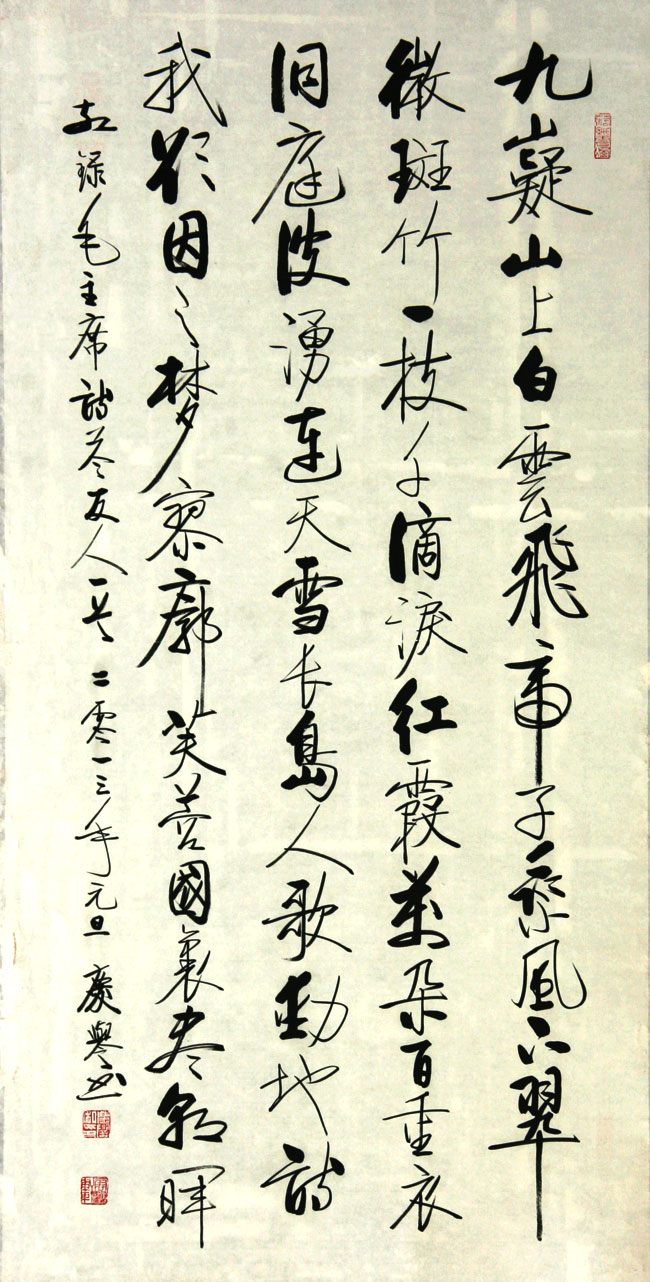 九嶷山上白雲飛帝子乘風下翠
微斑竹一枝千滴淚红霞萬朵百重衣
洞庭波湧連天雪长島人歌動地詩
我欲因之梦寥廓芙蓉國裏尽朝暉
敬録毛主席詩答友人一首 二零一三年元旦 慶書